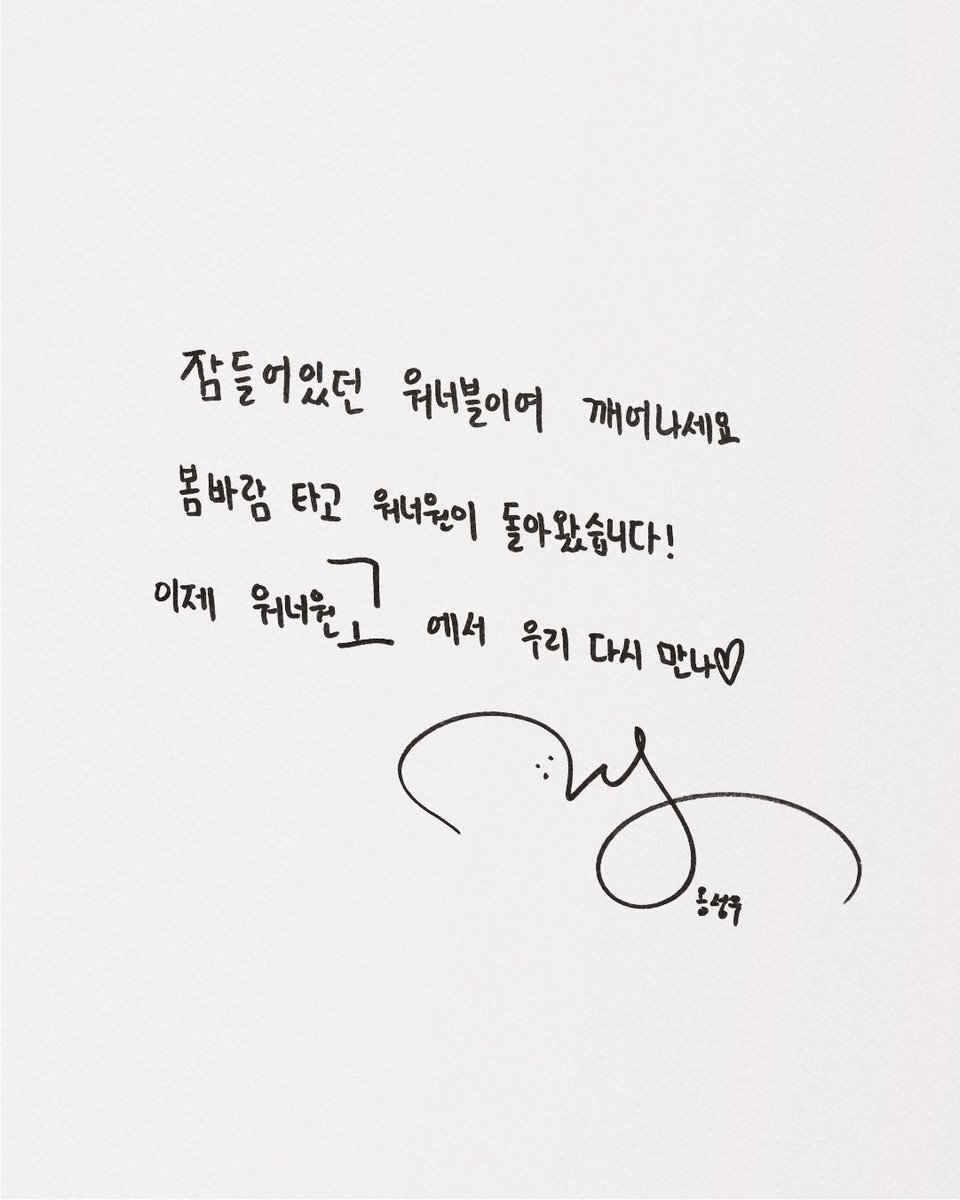 잠들어있던 워너블이여 깨어나세요
봄바람 타고 워너원이 돌아왔습니다!
이제 워너원고 에서 우리 다시 만나♡
옹성우